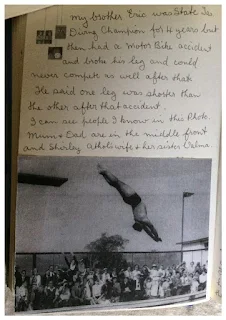 my brother Eric was State
Diving Champion for 4 years but
then had a Motor Bike accident
and broke his leg and could
never compete as well after that
He said one leg was shorter than
the other after that accident.
I can see people I know in this Photo.
Mum & Dad are in the middle front
and Shirley Athol's wife & her sister Velma.